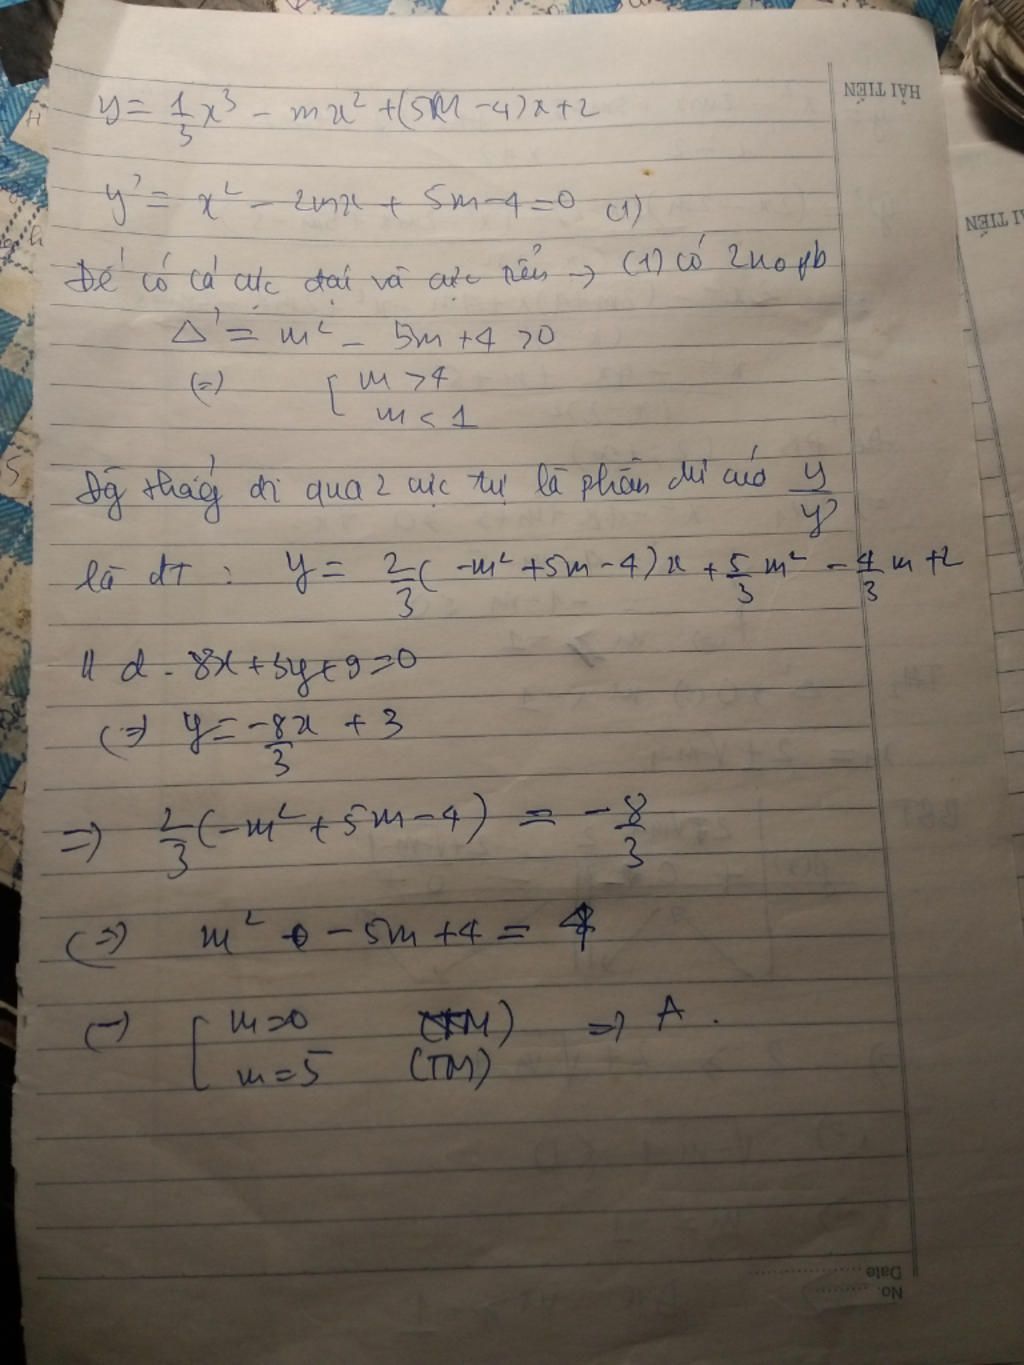 HẢI TIẾN
y = 1/3 x³ - mx² + (5m - 4)x + 2
y' = x² - 2mx + 5m - 4 = 0 (1)
Để có cả cực đại và cực tiểu → (1) có 2 no pb
Δ' = m² - 5m + 4 > 0
(=) [ m > 4
m < 1
Đg thẳg đi qua 2 cực trị là phần dư của y/y'
là đt : y = 2/3 (-m² + 5m - 4)x + 5/3 m² - 4/3 m + 2
// d - 8x + 3y + 9 = 0
(=) y = -8x/3 + 3
=) 2/3 (-m² + 5m - 4) = -8/3
(=) m² - 5m + 4 = 4
(=) [ m = 0 (TM) =) A .
m = 5 (TM)
Date
No.
ẢI TIẾN